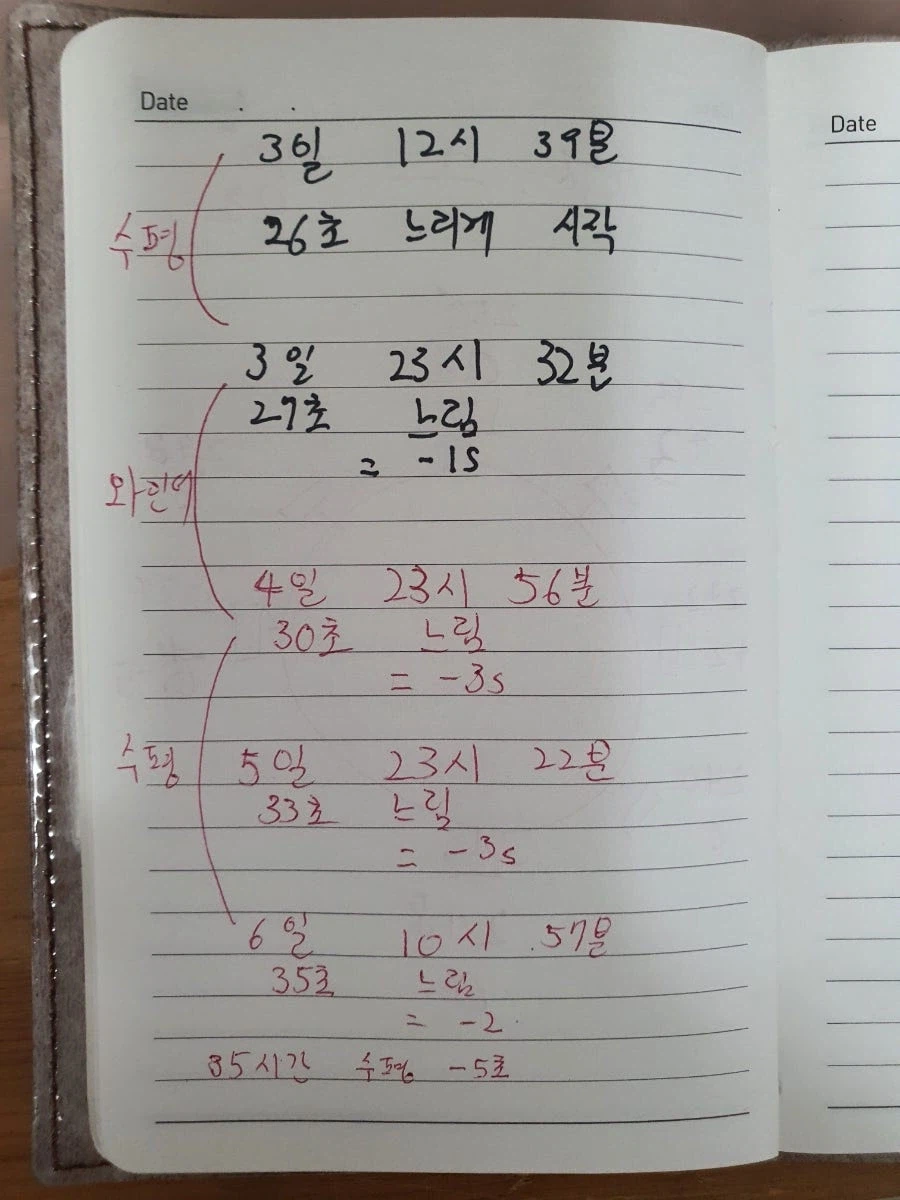 Date . .
3일 12시 39분
수평
26초 느리게 시작
3일 23시 32분
27초 느림
= -1s
와인더
4일 23시 56분
30초 느림
= -3s
수평
5일 23시 22분
33초 느림
= -3s
6일 10시 57분
35초 느림
= -2
35시간 수평 -5초
Date